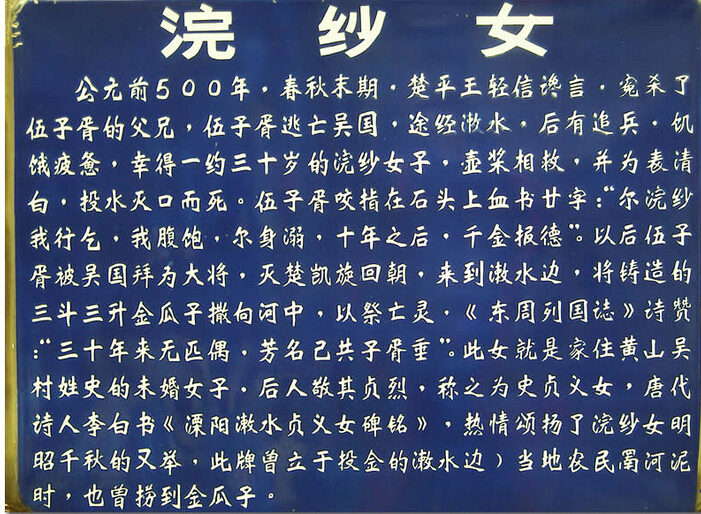 浣纱女
公元前500年，春秋末期，楚平王轻信谗言，冤杀了
伍子胥的父兄，伍子胥逃亡吴国，途经溵水，后有追兵，饥
饿疲惫，幸得一约三十岁的浣纱女子，壶浆相救，并为表清
白，投水灭口而死。伍子胥咬指在石头上血书廿字：“尔浣纱
我行乞，我腹饱，尔身溺，十年之后，千金报德”。以后伍子
胥被吴国拜为大将，灭楚凯旋回朝，来到溵水边，将铸造的
三斗三升金瓜子撒向河中，以祭亡灵，《东周列国志》诗赞
：“三十年来无匹偶，芳名已共子胥垂”。此女就是家住黄山吴
村姓史的未婚女子，后人敬其贞烈，称之为史贞义女，唐代
诗人李白书《溧阳溵水贞义女碑铭》，热情颂扬了浣纱女明
昭千秋的义举，此牌曾立于投金的溵水边）当地农民罱河泥
时，也曾捞到金瓜子。